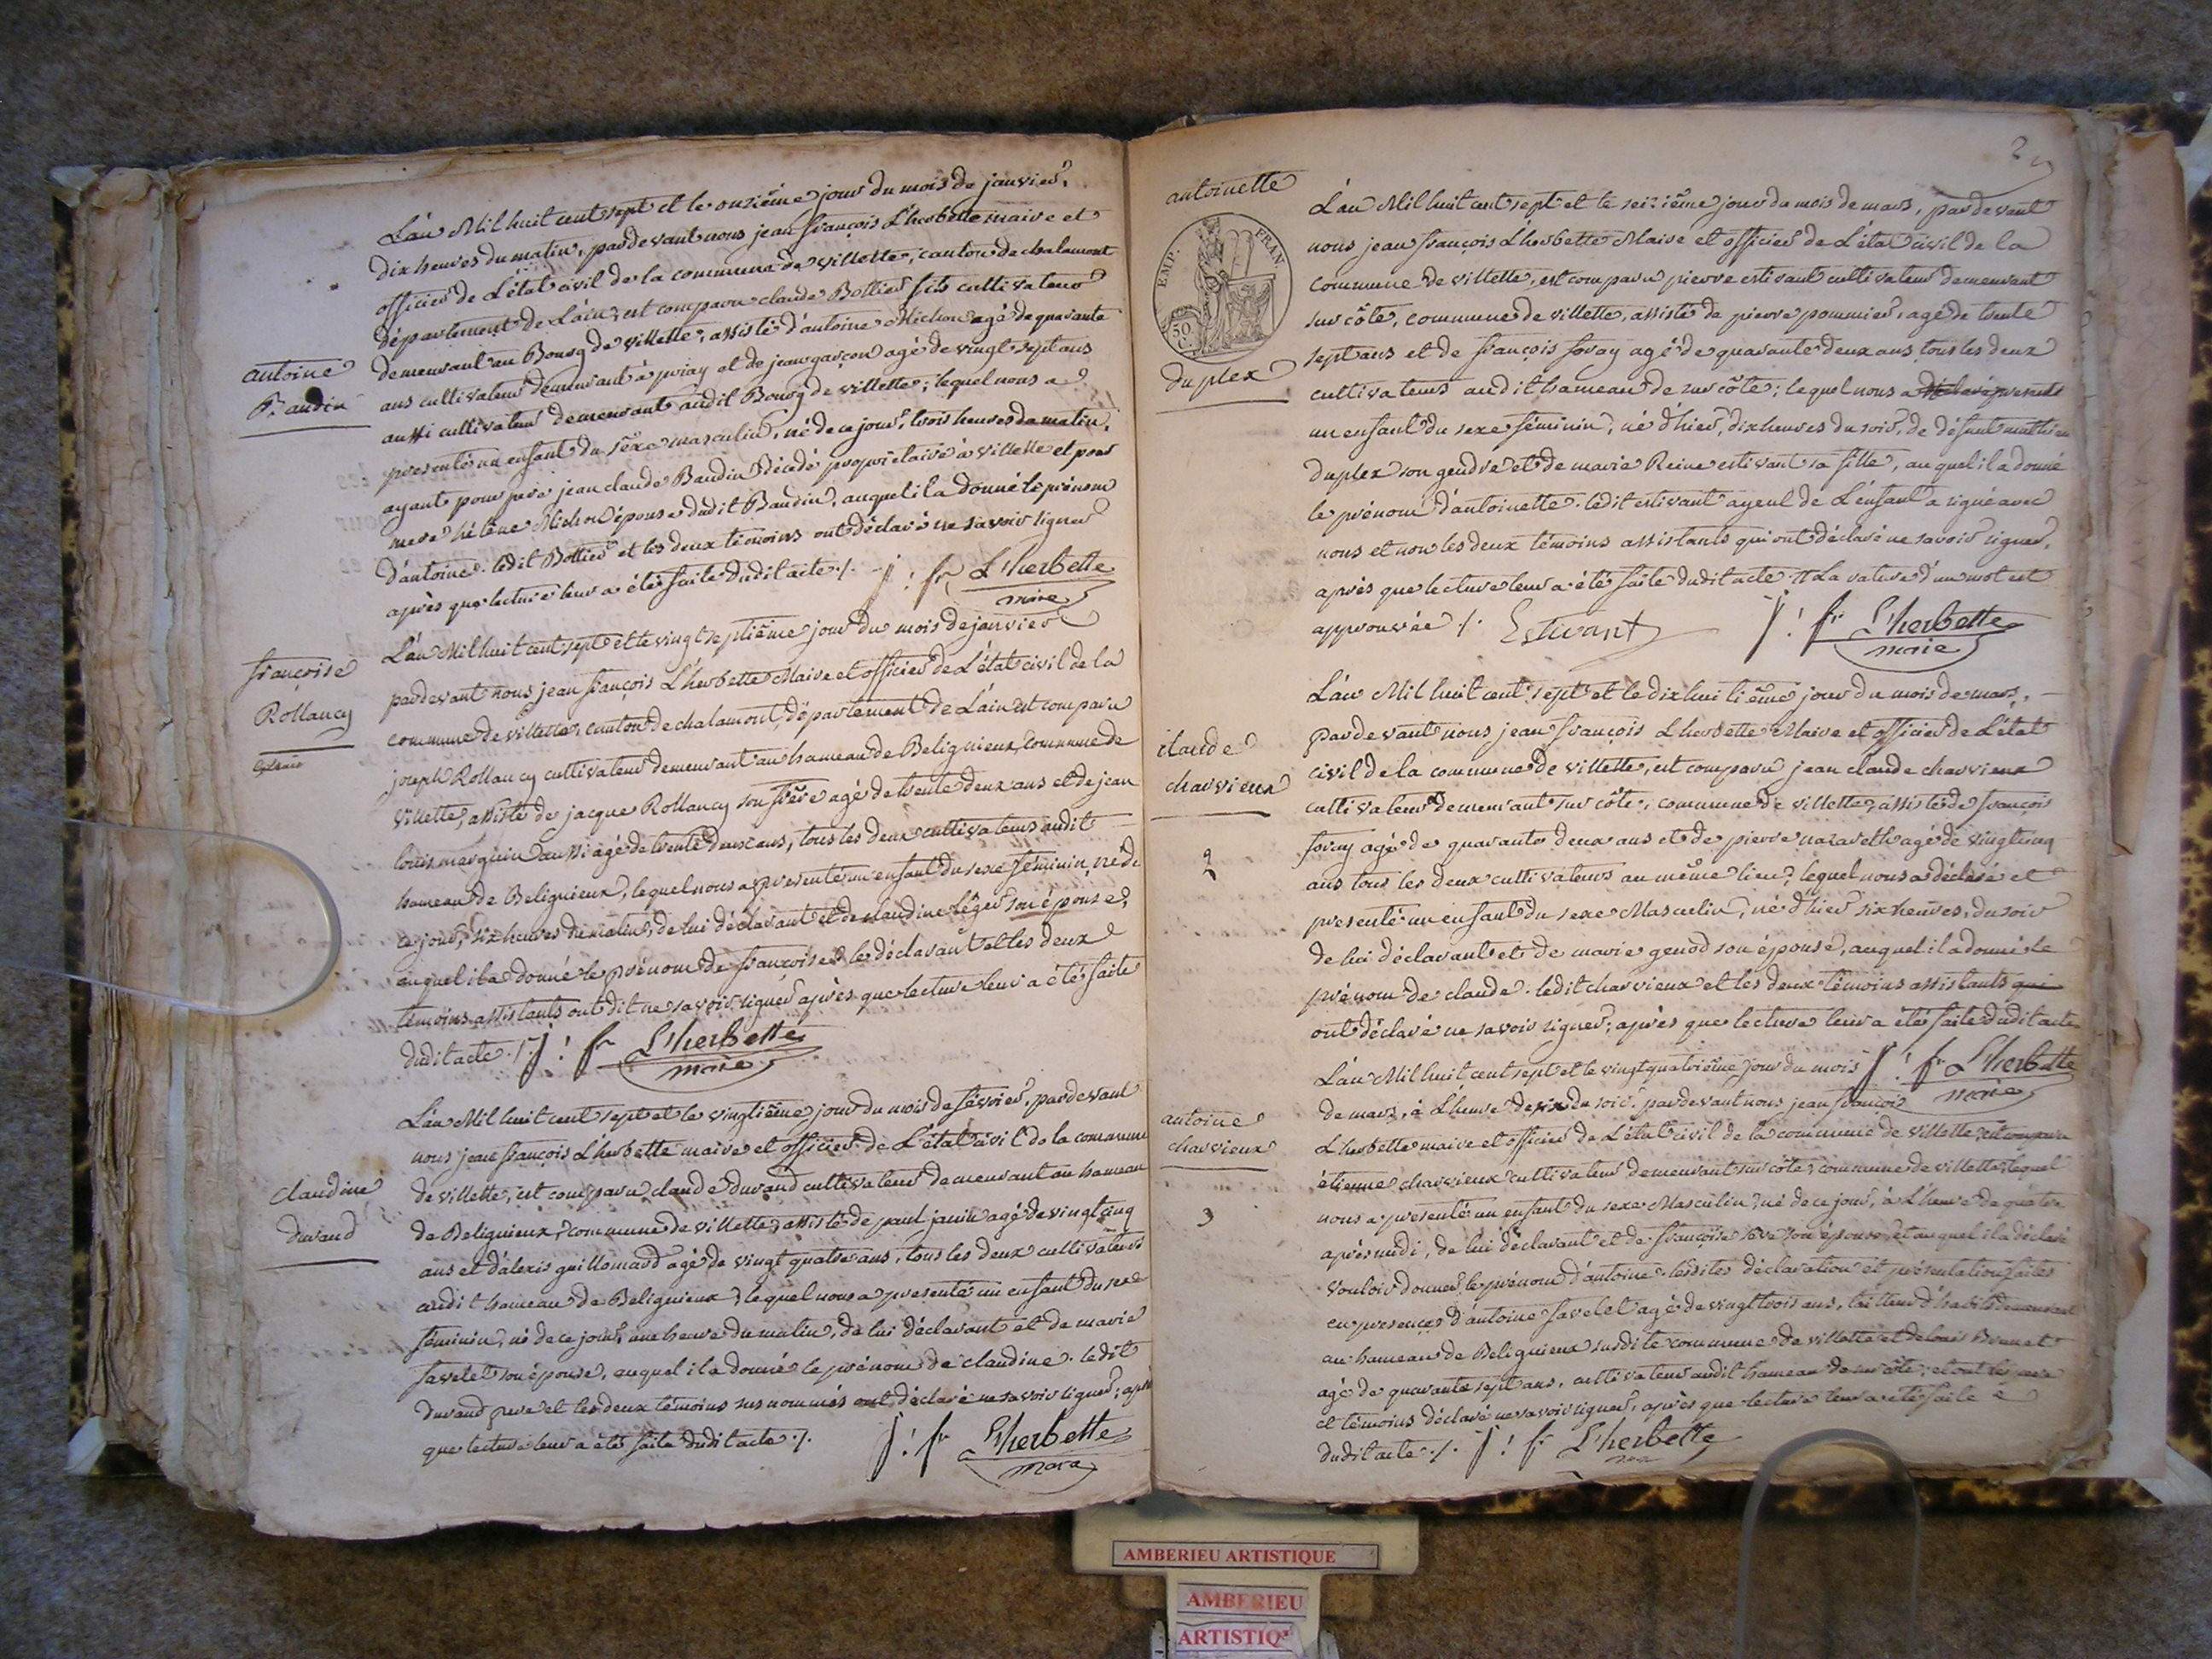 L'an Mil huit cent sept et le onzième jour du mois de janvier,
dix heures du matin, pardevant nous jean françois L'herbette maire et
officier de L'état civil de la commune de villette, canton de chalamont
département de L'ain, est comparu claude Bottier fils cultivateur
demeurant au Bourg de villette, assisté d'antoine Michon agé de quarante
antoine
Baudin
ans cultivateur demeurant à priay et de jean garçon agé de vingt sept ans
aussi cultivateur demeurant audit Bourg de villette; lequel nous a
presenté un enfant du sexe masculin, né de ce jour, trois heures du matin,
ayant pour pere jean claude Baudin décédé propriétaire à villette et pour
mere hélène Michon épouse dudit Baudin, auquel il a donné le prénom
d'antoine. ledit Bottier et les deux témoins ont déclaré ne savoir signer
après que lecture leur a été faite dudit acte ./. j: fr L'herbette
maire
françoise
Rollancy
L'an Mil huit cent sept et le vingt septième jour du mois de janvier
pardevant nous jean françois L'herbette Maire et officier de L'état civil de la
commune de villette, canton de chalamont, département de L'ain est comparu
joseph Rollancy cultivateur demeurant au hameau de Beligneux, commune de
villette, assisté de jacque Rollancy son frère agé de trente deux ans et de jean
louis marguin aussi agé de trente deux ans, tous les deux cultivateurs audit
hameau de Beligneux, lequel nous a presenté un enfant du sexe féminin, né de
ce jour, six heures du matin, de lui déclarant et de claudine Léger son épouse,
auquel il a donné le prénom de françoise. le déclarant et les deux
témoins assistants ont dit ne savoir signer après que lecture leur a été faite
dudit acte ./. j: fr L'herbette
maire
claudine
durand
L'an Mil huit cent sept et le vingtième jour du mois de février. pardevant
nous jean françois L'herbette maire et officier de L'état civil de la commune
de villette, est comparu claude durand cultivateur demeurant au hameau
de Beligneux, commune de villette, assisté de paul janin agé de vingt cinq
ans et d'alexis guillomard agé de vingt quatre ans, tous les deux cultivateurs
audit hameau de Beligneux, lequel nous a presenté un enfant du sexe
féminin, né de ce jour, une heure du matin, de lui déclarant et de marie
favelet son épouse, auquel il a donné le prénom de claudine. ledit
durand pere et les deux témoins sus nommés ont déclaré ne savoir signer, après
que lecture leur a été faite dudit acte ./. j: fr L'herbette
maire
antoinette
EMP. FRAN.
50 C.
duplex
L'an Mil huit cent sept et le seizième jour du mois de mars, pardevant
nous jean françois Lherbette Maire et officier de L'état civil de la
commune de villette, est comparu pierre estivant cultivateur demeurant
sur côte, commune de villette, assisté de pierre pommier, agé de trente
sept ans et de françois foray agé de quarante deux ans, tous les deux
cultivateurs audit hameau de sur côte; lequel nous a déclaré presenté
un enfant du sexe féminin, né d'hier, dix heures du soir, de défunt mathieu
duplex son gendre et de marie Reine estivant sa fille, auquel il a donné
le prénom d'antoinette. ledit estivant ayeul de L'enfant a signé avec
nous et non les deux témoins assistants qui ont déclaré ne savoir signer,
après que lecture leur a été faite dudit acte. La rature d'un mot est
approuvée ./. Estivant j: fr L'herbette
maire
claude
charvieux
2
L'an Mil huit cent sept et le dix huitième jour du mois de mars,
pardevant nous jean françois Lherbette Maire et officier de L'état
civil de la commune de villette, est comparu jean claude charvieux
cultivateur demeurant sur côte, commune de villette, assisté de françois
foray agé de quarante deux ans et de pierre nazareth agé de vingt cinq
ans tous les deux cultivateurs au même lieu, lequel nous a déclaré et
presenté un enfant du sexe Masculin, né d'hier six heures, du soir
de lui déclarant et de marie genod son épouse, auquel il a donné le
prénom de claude. ledit charvieux et les deux témoins assistants qui
ont déclaré ne savoir signer, après que lecture leur a été faite dudit acte
j: fr L'herbette
maire
antoine
charvieux
3
L'an Mil huit cent sept et le vingt quatrième jour du mois
de mars, à L'heure de six du soir. pardevant nous jean françois
Lherbette maire et officier de L'état civil de la commune de villette, est comparu
étienne charvieux cultivateur demeurant sur côte, commune de villette, lequel
nous a presenté un enfant du sexe Masculin, né de ce jour, à L'heure de quatre
après midi, de lui déclarant et de françoise son épouse, et auquel il a déclaré
vouloir donner le prénom d'antoine. lesdites déclaration et présentation faites
en presence d'antoine favelet agé de vingt trois ans, tailleur d'habits demeurant
au hameau de Beligneux susdite commune de villette et de louis Brunet
agé de quarante sept ans, cultivateur audit hameau de sur côte; et ont les pere
et témoins déclaré ne savoir signer, après que lecture leur a été faite
dudit acte ./. j: fr L'herbette
AMBERIEU ARTISTIQUE
AMBERIEU
ARTISTIQ